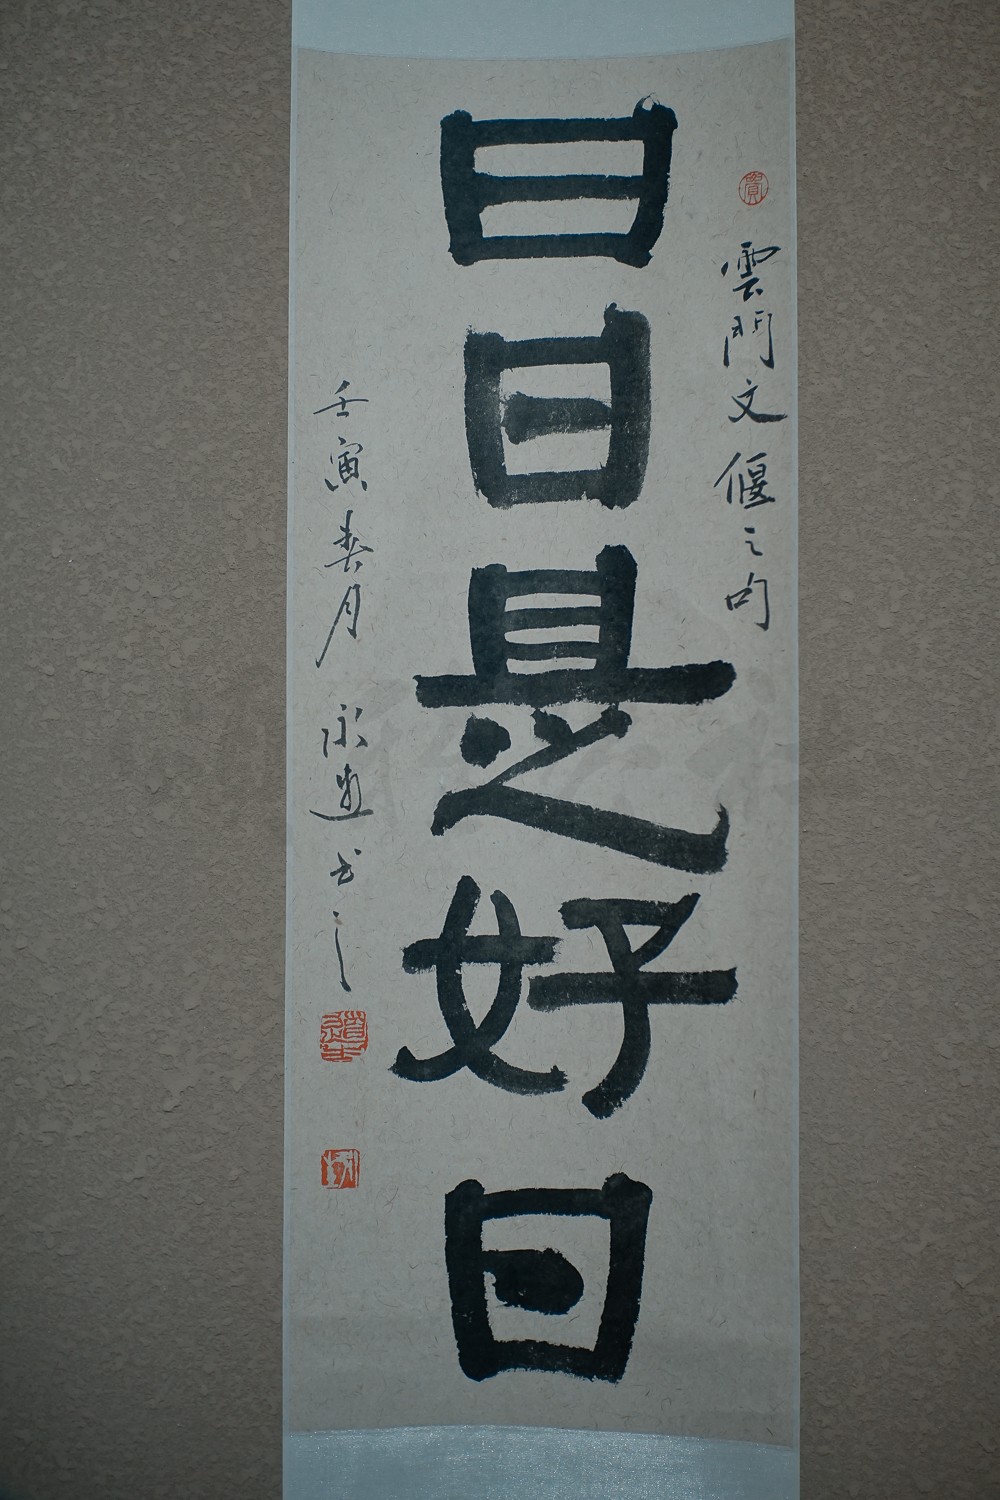 雲門文偃之句
日日是好日
壬寅春月 永進书之